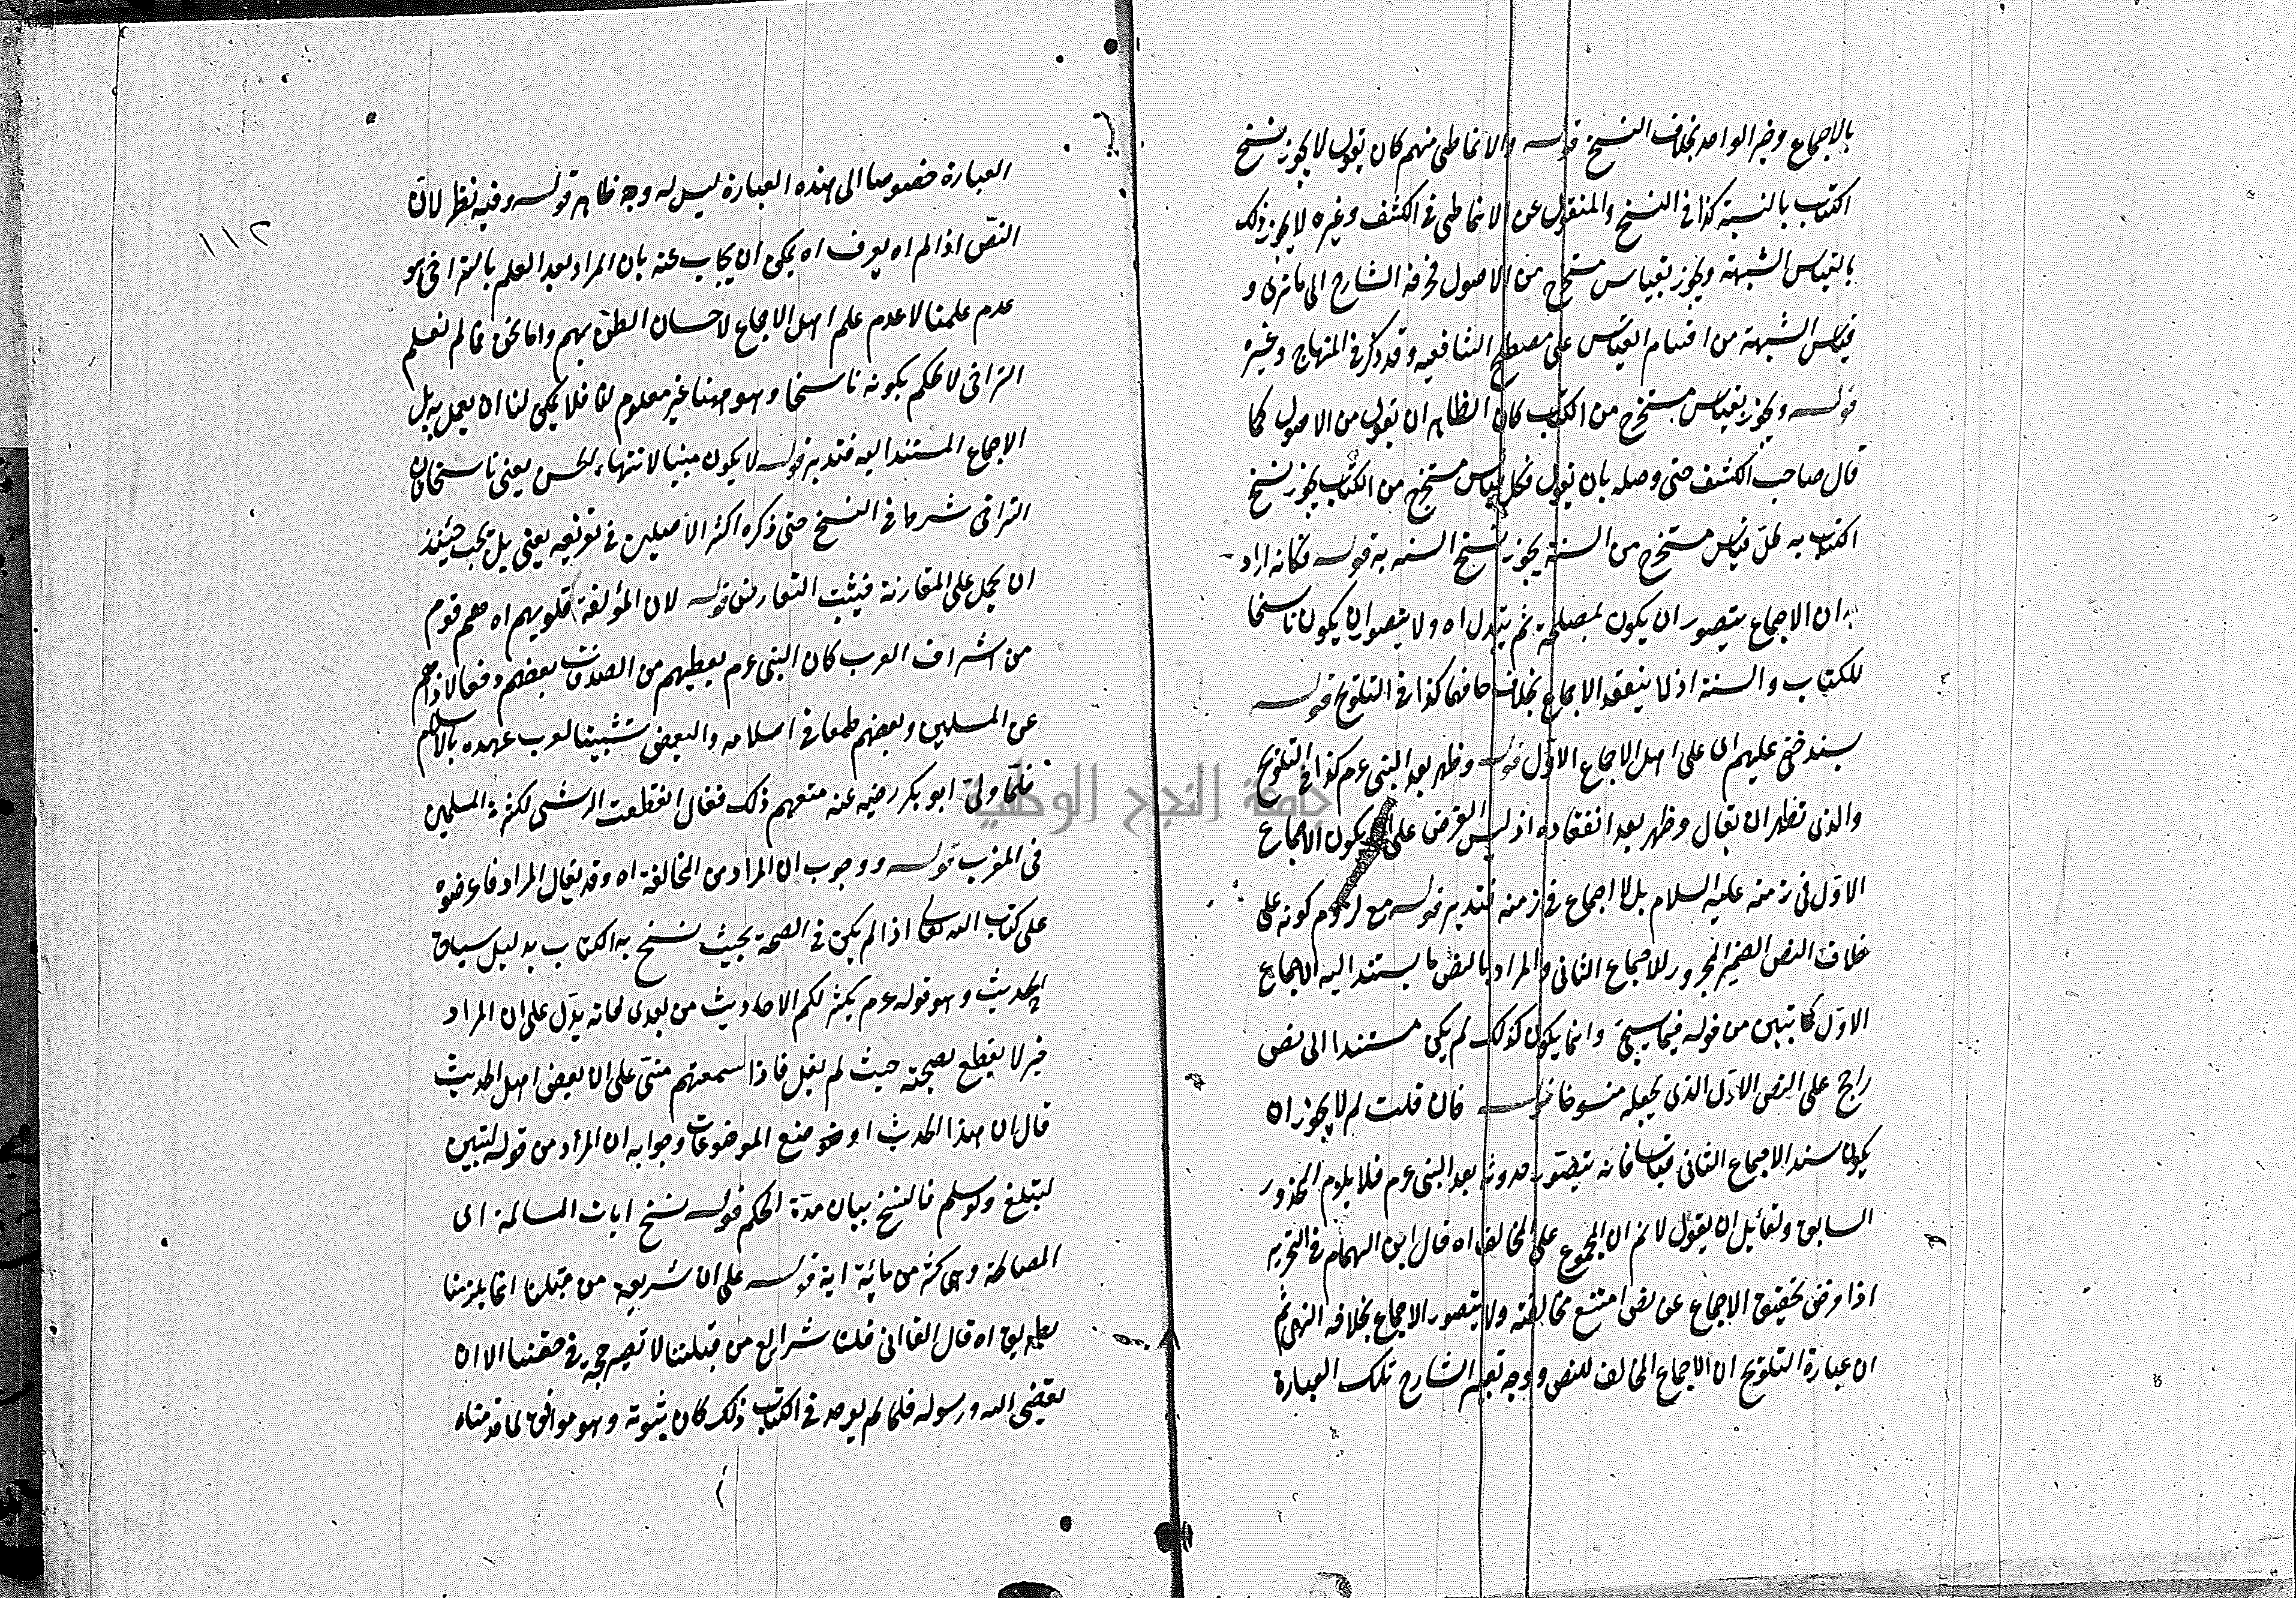 بالاجماع وخبر الواحد بخلاف النسخ قوله والانماطى منهم كان يقول لا يجوز نسخ
الكتاب بالسنة كذا فى النسخ والمنقول عن الانماطى فى الكشف وغيره لا يجوز ذلك
بالقياس الشبهة ويجوز بقياس مستخرج من الاصول فحرفه الشارح الى ما ترى و
قياس الشبهة من اقسام القياس على مصطلح الشافعيه وقد ذكر فى المنهاج وغيره
قوله ويجوز بقياس مستخرج من الكتاب كان الظاهر ان يقول من الاصول كما
قال صاحب الكشف حتى وصله بان يقول فكل قياس مستخرج من الكتاب يجوز نسخ
الكتاب به وكل قياس مستخرج من السنة يجوز نسخ السنه به قوله فكانه اراد
به ان الاجماع يتصور ان يكون لمصلحة ثم يتبدل اه ولا يتصور ان يكون ناسخا
للكتاب والسنة اذ لا ينعقد الاجماع بخلاف حافهما كذا فى التلويح قوله
بسند خفى عليهم اى على اهل الاجماع الاول قوله وظهر بعد النبى عم كذا فى التلويح
والذى تظهر ان يقال وظهر بعد انعقاده اذ ليس الغرض على ان يكون الاجماع
الاول فى زمنه عليه السلام بل لا اجماع فى زمنه فتدبر قوله مع لزوم كونه على
خلاف النص الضمير المجرور للاجماع الثانى والمراد بالنص ما يستند اليه الاجماع
الاول كما تبين من قوله فيما سيجئ وانما يكون كذلك لم يكن مستندا الى نص
راجح على النص الاول الذى يجعله منسوخا قوله فان قلت لم لا يجوز اه
يكون سند الاجماع الثانى قياسا فانه يتصور حدوثه بعد النبى عم فلا يلزم المحذور
السابق ولقائل ان يقول لا نم ان المجموع على المخالف اه قال ابن الهمام فى التحرير
اذا فرض تحقيق الاجماع عن نص امتنع مخالفته ولا يتصور الاجماع بخلافه انتهى ثم
ان عبارة التلويح ان الاجماع المخالف للنص ووجه تغير الشارح تلك العبارة
١١٢
العبارة خصوصا الى هذه العبارة ليس له وجه ظاهر قوله وفيه نظر لان
النص اذا لم اه يعرف اه يمكن ان يجاب عنه بان المراد بعد العلم بالتراخى هو
عدم علمنا لا عدم علم اهل الاجماع لاحسان الظن بهم واما نحن فما لم نعلم
التراخى لا نحكم بكونه ناسخا وهو ههنا غير معلوم لنا فلا يمكن لنا ان نعمل به بل
الاجماع المستند اليه فتدبر قوله لا يكون مبنيا لانتهاء الحسن يعنى ناسخا فان
التراخى شرط فى النسخ حتى ذكره اكثر الاصليين فى تعريفه يعنى بل يجب حينئذ
ان يحمل على المقارنة فيثبت التعارض قوله لان المؤلفة قلوبهم اه هم قوم
من اشراف العرب كان النبى عم يعطيهم من الصدقات بعضهم دفعا لاذاهم
عن المسلمين وبعضهم طمعا فى اسلامه والبعض تثبيتا لقرب عهده بالاسلام
فلما ولى ابو بكر رضى عنه منعهم ذلك فقال انقطعت الرشى لكثرة المسلمين
فى المغرب قوله ووجوب ان المراد من المخالفة اه وقد يقال المراد فاعرضوه
على كتاب الله تعالى اذا لم يكن فى الصحة بحيث نسخ به الكتاب بدليل سياق
الحديث وهو قوله عم يكثر لكم الاحاديث من بعدى فانه يدل على ان المراد
خبر لا يقطع بصحته حيث لم يقل فاذا سمعتهم منى على ان بعض اهل الحديث
قال ان هذا الحدث اوضو ضع الموضوعات وجوابه ان المراد من قوله لتبين
لتبلغ ولو سلم فالنسخ بيان مدة الحكم قوله نسخ ايات المسالمة اى
المصالحة وهى اكثر من مائة اية قوله على ان شريعة من قبلنا انما يلزمنا
بطريق اه قال القاانى قلنا شرايع من قبلنا لا تصير حجة فى حقنا الا ان
يقضى الله ورسوله فلما لم يوجد فى الكتاب ذلك كان ثبوته وهو موافق لما قدمناه
جامعة النجاح الوطنية